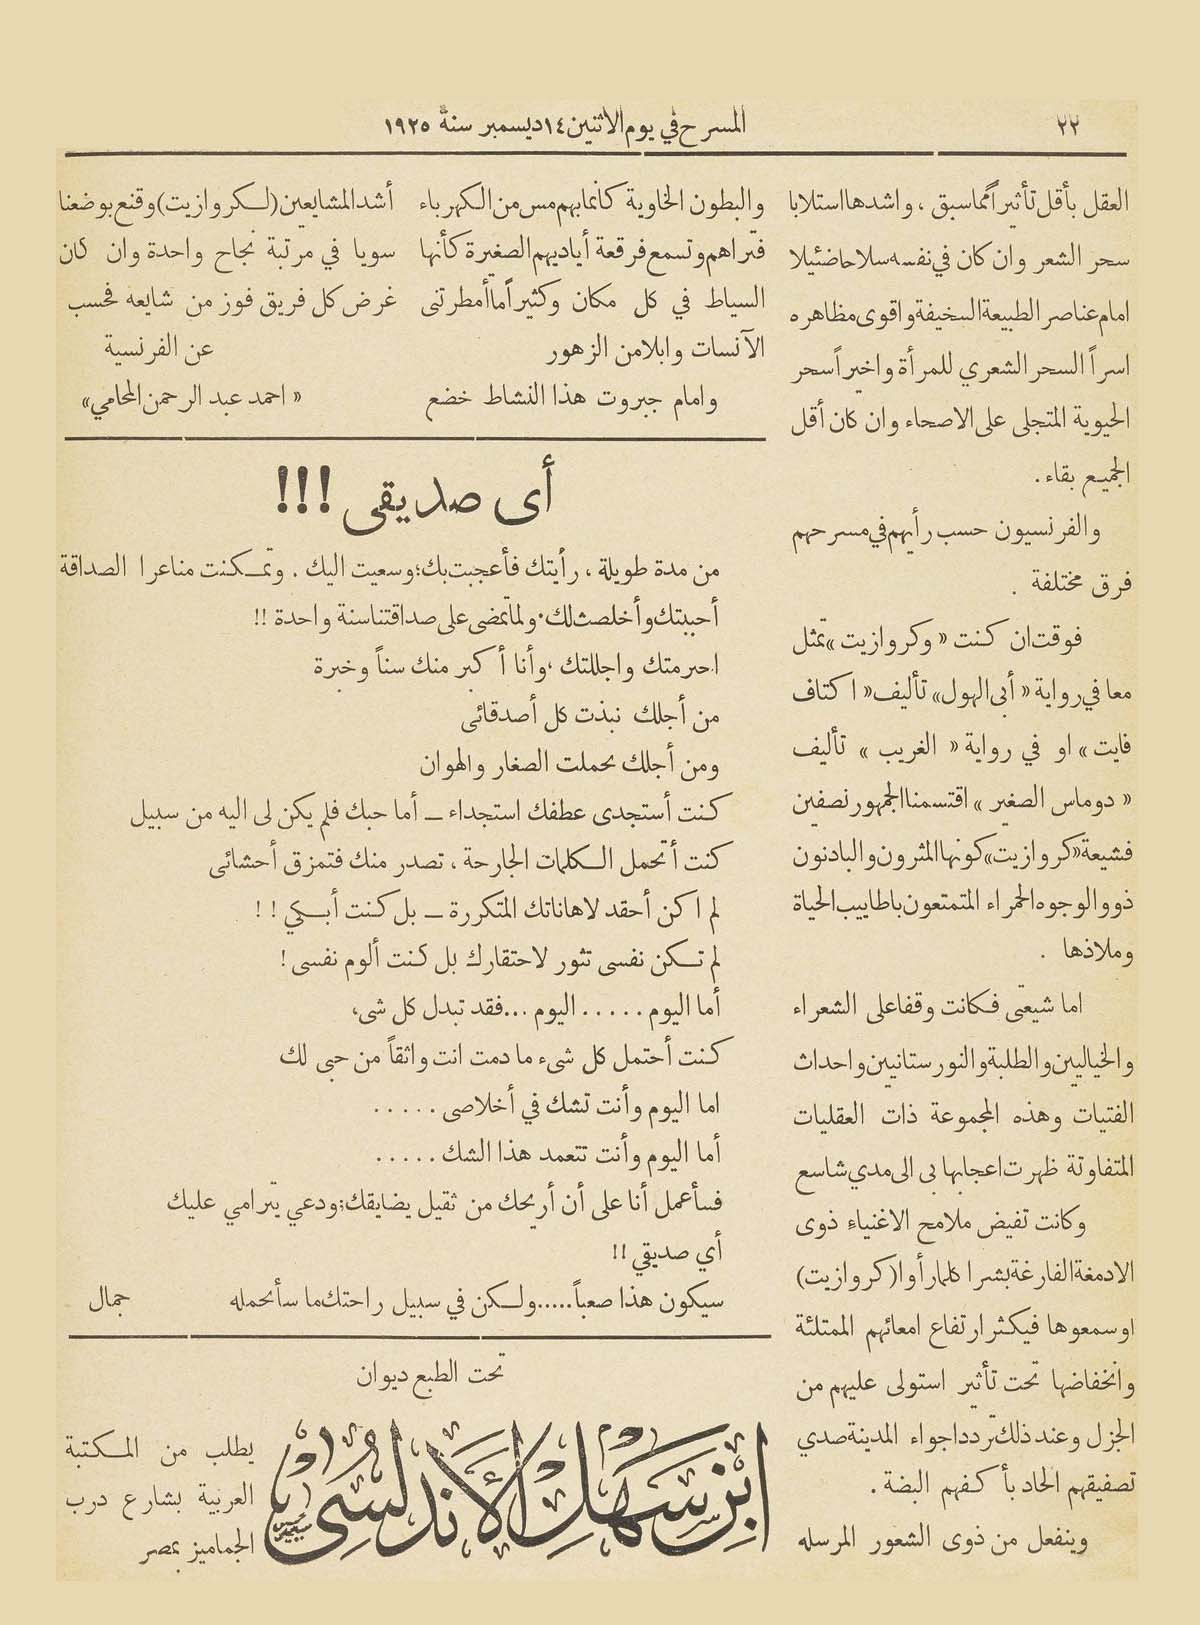 ٢٢
المسرح في يوم الاثنين ١٤ ديسمبر سنة ١٩٢٥
العقل بأقل تأثيراً مما سبق ، واشدها استلابا
سحر الشعر وان كان في نفسه سلاحا ضئيلا
امام عناصر الطبيعة السخيفة واقوى مظاهره
اسراً السحر الشعري للمرأة واخيراً سحر
الحيوية المتجلى على الاصحاء وان كان أقل
الجميع بقاء .
والفرنسيون حسب رأيهم في مسرحهم
فرق مختلفة .
فوقت ان كنت « وكروازيت » تمثل
معا في رواية « أبي الهول » تأليف « اكتاف
فايت » او في رواية « الغريب » تأليف
« دوماس الصغير » اقتسمنا الجمهور نصفين
فشيعة « كروازيت » كونها المثرون والبادنون
ذوو الوجوه الحمراء المتمتعون باطاييب الحياة
وملاذها .
اما شيعتى فكانت وقفا على الشعراء
والخياليين والطلبة والنورستانيين واحداث
الفتيات وهذه المجموعة ذات العقليات
المتفاوتة ظهرت اعجابها بى الى مدي شاسع
وكانت تفيض ملامح الاغنياء ذوى
الادمغة الفارغة بشرا كلما رأوا (كروازيت)
او سمعوها فيكثر ارتفاع امعائهم الممتلئة
وانخفاضها تحت تأثير استولى عليهم من
الجزل وعند ذلك تردد اجواء المدينة صدي
تصفيقهم الحاد بأكفهم البضة .
وينفعل من ذوى الشعور المرسله
والبطون الخاوية كأنما بهم مس من الكهرباء
فتراهم وتسمع فرقعة أياديهم الصغيرة كأنها
السياط في كل مكان وكثيراً ما أمطرتنى
الآنسات وابلا من الزهور
وامام جبروت هذا النشاط خضع
أشد المشايعين (لكروازيت) وقنع بوضعنا
سويا في مرتبة نجاح واحدة وان كان
غرض كل فريق فوز من شايعه فحسب
عن الفرنسية
« احمد عبد الرحمن المحامي »
أى صديقى !!!
من مدة طويلة ، رأيتك فأعجبت بك؛ وسعيت اليك . وتمكنت منا عرا الصداقة
أحببتك وأخلصت لك . ولما تمضى على صداقتنا سنة واحدة !!
احترمتك واجللتك ، وأنا أكبر منك سناً وخبرة
من أجلك نبذت كل أصدقائى
ومن أجلك تحملت الصغار والهوان
كنت أستجدى عطفك استجداء ــ أما حبك فلم يكن لى اليه من سبيل
كنت أتحمل الكلمات الجارحة ، تصدر منك فتمزق أحشائى
لم اكن أحقد لاهاناتك المتكررة ــ بل كنت أبكي ! !
لم تكن نفسى تثور لاحتقارك بل كنت ألوم نفسى !
أما اليوم ..... اليوم ... فقد تبدل كل شىء
كنت أحتمل كل شىء ما دمت انت واثقاً من حبى لك
اما اليوم وأنت تشك في أخلاصى .....
أما اليوم وأنت تتعمد هذا الشك .....
فسأعمل أنا على أن أريحك من ثقيل يضايقك؛ ودعي يترامي عليك
أي صديقي !!
سيكون هذا صعباً ..... ولكن في سبيل راحتك ما سأتحمله
جمال
تحت الطبع ديوان
ابن سهل الأندلسى
يطلب من المكتبة
العربية بشارع درب
الجماميز بمصر